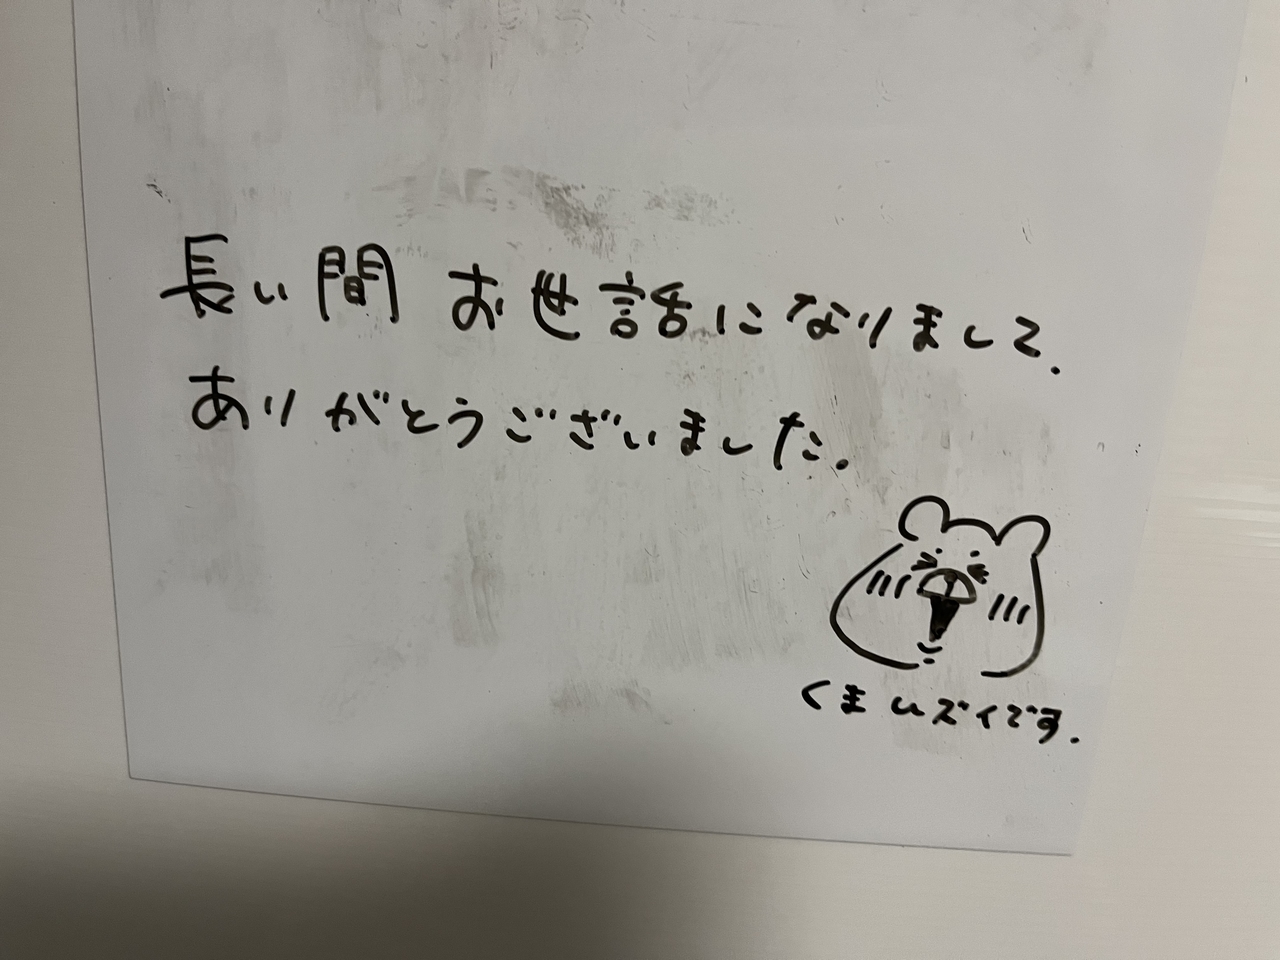 長い間 お世話になりまして.
ありがとうございました.
くまいズイです.